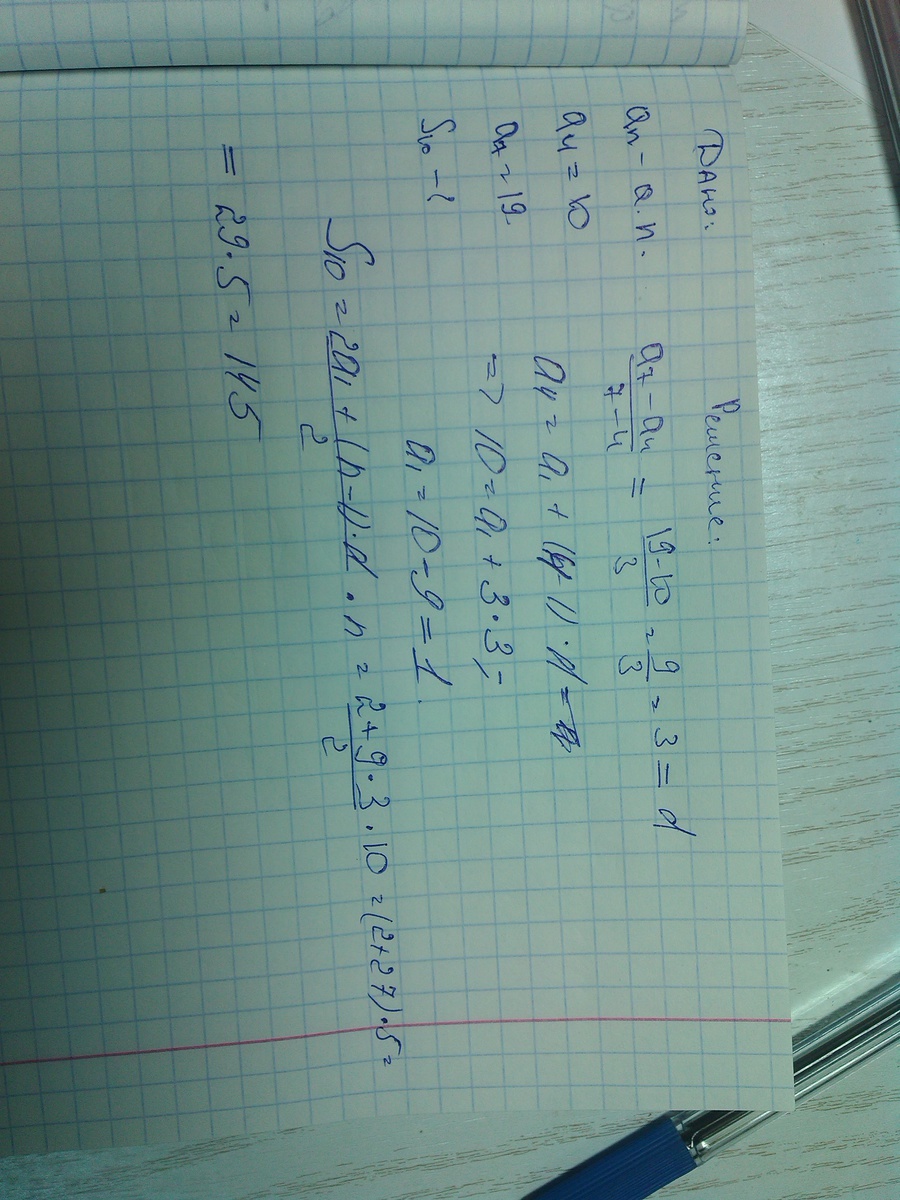 Дано:
aₙ - а.п.
a₄ = 10
a₇ = 19.
S₁₀ - ?
Решение:
(a₇ - a₄)/(7-4) = (19-10)/3 = 9/3 = 3 = d
a₄ = a₁ + (4-1)·d =
=> 10 = a₁ + 3·3;
a₁ = 10 - 9 = 1.
S₁₀ = (2a₁ + (n-1)·d)/2 · n = (2+9·3)/2 · 10 = (2+27)·5 =
= 29·5 = 145